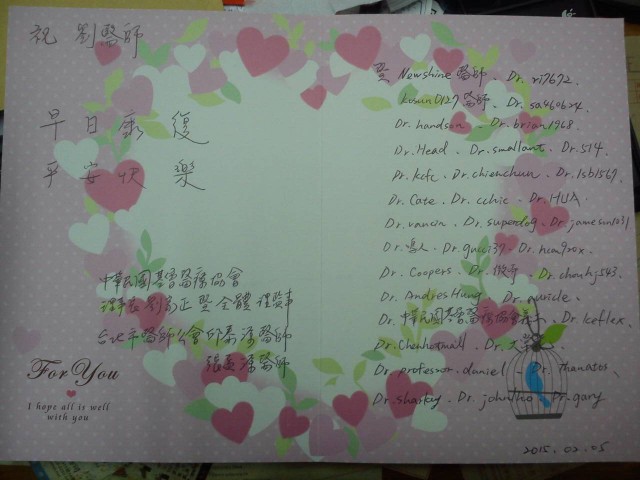 祝 劉醫師
早日康復
平安快樂
中華民國基層醫療協會
理事長劉 正 暨全體理監事
台北市醫師公會 醫師
張 醫師
For You
I hope all is well
with you
暨 Newshine 醫師、Dr. ri7672、
kusun0127 醫師、Dr. sa460624、
Dr. handson、Dr. brian1968、
Dr. Head、Dr. smallant、Dr. 514、
Dr. kcfc、Dr. chienchun、Dr. lsb1569、
Dr. Cate、Dr. cchic、Dr. HUA、
Dr. vancin、Dr. superdog、Dr. jameson1031
Dr. gucci39、Dr.
Dr. Coopers、Dr. Dr. chouhj543、
Dr. Andries Hung、Dr. auricle、
Dr. 中華民國基層醫療協會 、Dr. keflex、
Dr. Chenhotmall、Dr.
Dr. professor.daniel、Dr. thanatos、
Dr. sharkey、Dr. johntho、Dr. gary
2015.02.05